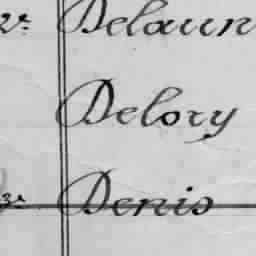 2ᵉ Delaun
Delory
3ᵉ Denis